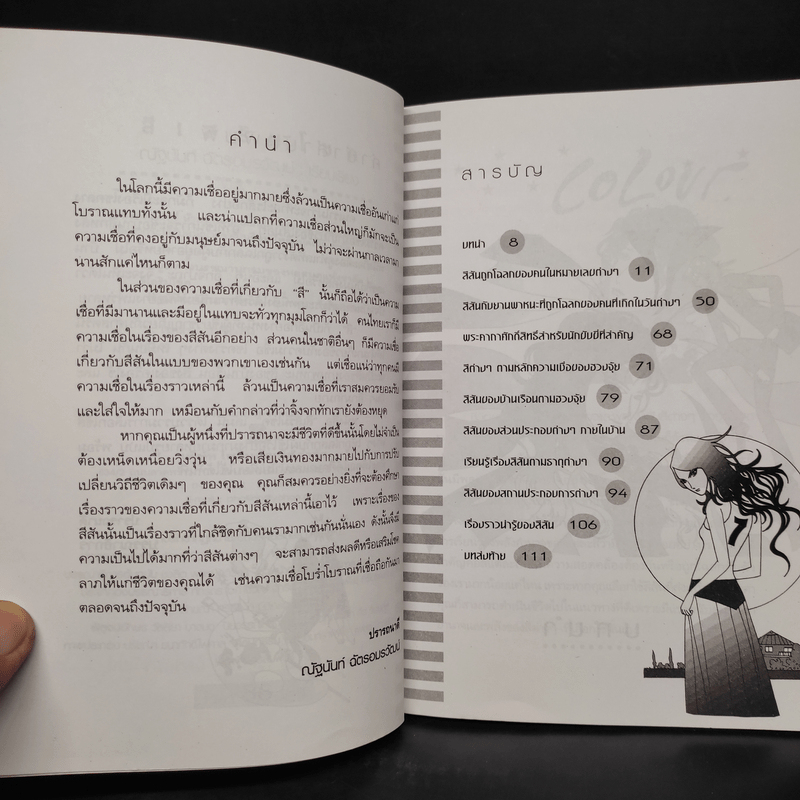 คำนำ
ในโลกนี้มีความเชื่ออยู่มากมายซึ่งล้วนเป็นความเชื่ออันเก่าแก่
โบราณแทบทั้งนั้น และน่าแปลกที่ความเชื่อส่วนใหญ่ก็มักจะเป็น
ความเชื่อที่คงอยู่กับมนุษย์มาจนถึงปัจจุบัน ไม่ว่าจะผ่านกาลเวลามา
นานสักแค่ไหนก็ตาม
ในส่วนของความเชื่อที่เกี่ยวกับ "สี" นั้นก็ถือได้ว่าเป็นความ
เชื่อที่มีมานานและมีอยู่ในแทบจะทั่วทุกมุมโลกก็ว่าได้ คนไทยเราก็มี
ความเชื่อในเรื่องของสีสันอีกอย่าง ส่วนคนในชาติอื่นๆ ก็มีความเชื่อ
เกี่ยวกับสีสันในแบบของพวกเขาเองเช่นกัน แต่เชื่อแน่ว่าทุกคนมี
ความเชื่อในเรื่องราวเหล่านี้ ล้วนเป็นความเชื่อที่เราสมควรยอมรับ
และใส่ใจให้มาก เหมือนกับคำกล่าวที่ว่าจิ้งจกทักเรายังต้องหยุด
หากคุณเป็นผู้หนึ่งที่ปรารถนาจะมีชีวิตที่ดีขึ้นนั้นโดยไม่จำเป็น
ต้องเหน็ดเหนื่อยวิ่งวุ่น หรือเสียเงินทองมากมายไปกับการปรับ
เปลี่ยนวิถีชีวิตเดิมๆ ของคุณ คุณก็สมควรอย่างยิ่งที่จะต้องศึกษา
เรื่องราวของความเชื่อที่เกี่ยวกับสีสันเหล่านี้เอาไว้ เพราะเรื่องของ
สีสันนั้นเป็นเรื่องราวที่ใกล้ชิดกับคนเรามากเช่นกันนั่นเอง ดังนั้นจึงมี
ความเป็นไปได้มากที่ว่าสีสันต่างๆ จะสามารถส่งผลดีหรือเสริมโชค
ลาภให้แก่ชีวิตของคุณได้ เช่นความเชื่อโบร่ำโบราณที่เชื่อถือกันมา
ตลอดจนถึงปัจจุบัน
ปรารถนาดี
ณัฐนันท์ ฉัตรอมรวัฒน์
สารบัญ
บทนำ 8
สีสันถูกโฉลกของคนในหมายเลขต่างๆ 11
สีสันกับยานพาหนะที่ถูกโฉลกของคนที่เกิดในวันต่างๆ 50
พระคาถาศักดิ์สิทธิ์สำหรับนักขับขี่ที่สำคัญ 68
สีต่างๆ ตามหลักความเชื่อของฮวงจุ้ย 71
สีสันของบ้านเรือนตามฮวงจุ้ย 79
สีสันของส่วนประกอบต่างๆ ภายในบ้าน 87
เรียนรู้เรื่องสีสันตามธาตุต่างๆ 90
สีสันของสถานประกอบการต่างๆ 94
เรื่องราวน่ารู้ของสีสัน 106
บทส่งท้าย 111